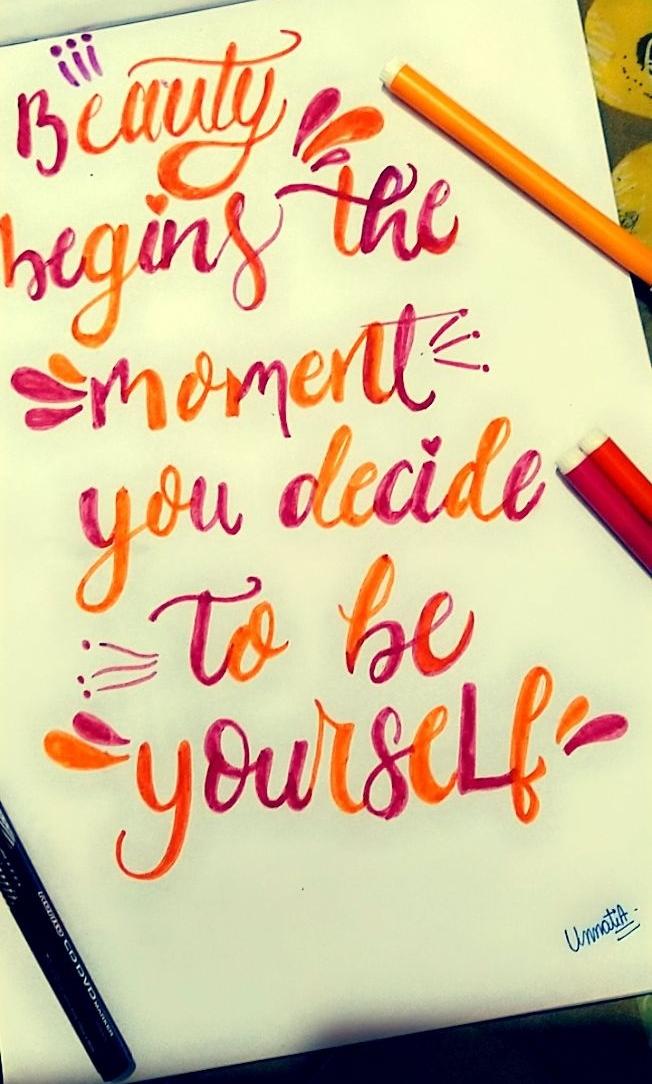 Beauty
begins the
moment
you decide
to be
yourself
UnnatiA
CD DVD MARKER